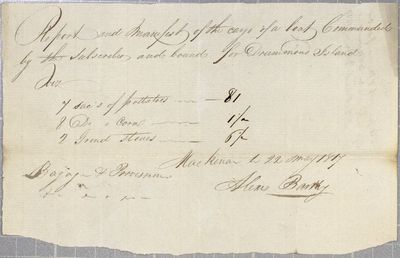 Report and Manifest of the cargo of a boat Commanded
by the subscriber and bound for Drummond Island
Viz
7 sac's of potatoes — 81
8 Do " Corn —
2 Grind stones — 6/
Mackinac 22 May 1817
Bagage & Provisions
Alexr